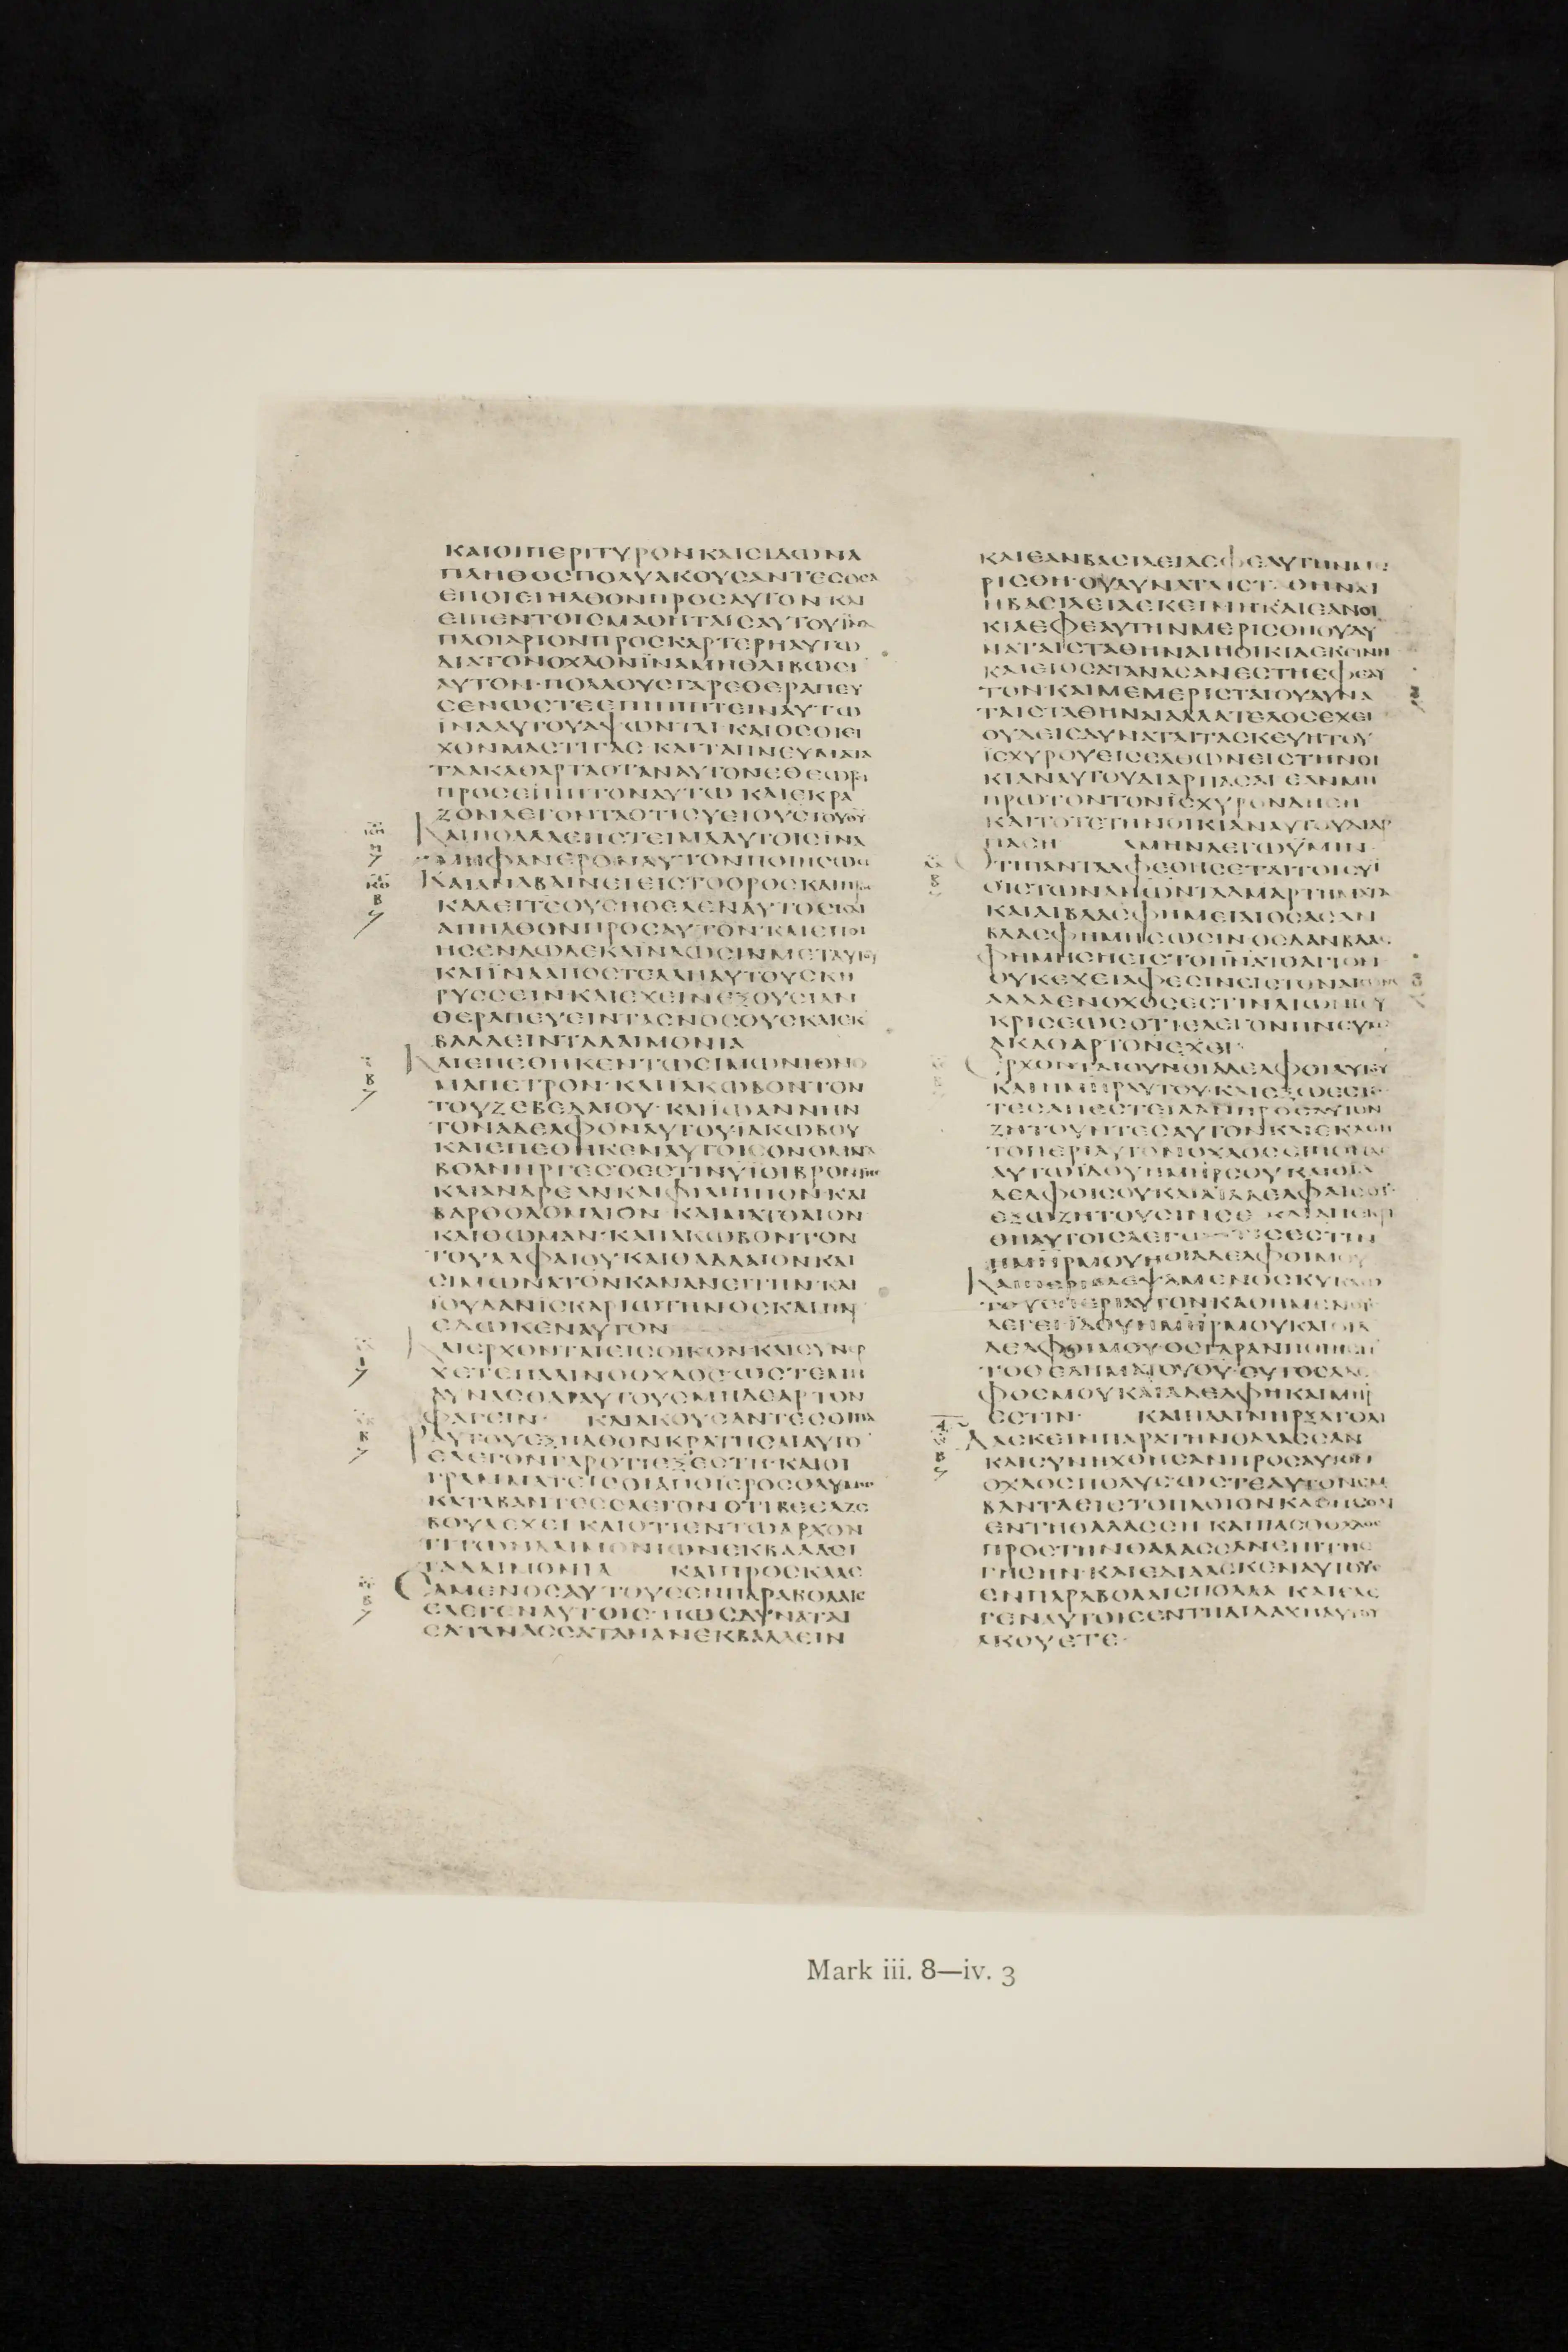 ΚΑΙΟΙΠΕΡΙΤΥΡΟΝΚΑΙCΙΔΩΝΑ
ΠΛΗΘΟCΠΟΛΥΑΚΟΥCΑΝΤΕCΟCΑ
ΕΠΟΙΕΙΗΛΘΟΝΠΡΟCΑΥΤΟΝΚΑΙ
ΕΙΠΕΝΤΟΙCΜΑΘΗΤΑΙCΑΥΤΟΥΪΝΑ
ΠΛΟΙΑΡΙΟΝΠΡΟCΚΑΡΤΕΡΗΑΥΤΩ
ΔΙΑΤΟΝΟΧΛΟΝΪΝΑΜΗΘΛΙΒΩCΙ
ΑΥΤΟΝ·ΠΟΛΛΟΥCΓΑΡΕΘΕΡΑΠΕΥ
CΕΝΩCΤΕΕΠΙΠΙΠΤΕΙΝΑΥΤΩ
ΪΝΑΑΥΤΟΥΑΨΩΝΤΑΙ·ΚΑΙΟCΟΙΕΙ
ΧΟΝΜΑCΤΙΓΑC·ΚΑΙΤΑΠΝΕΥΜΑΤΑ
ΤΑΑΚΑΘΑΡΤΑΟΤΑΝΑΥΤΟΝΕΘΕΩΡΙ
ΠΡΟCΕΠΙΠΤΟΝΑΥΤΩ ΚΑΙΕΚΡΑ
ΖΟΝΛΕΓΟΝΤΑΟΤΙCΥΕΙΟΥCΤΟΥΘΥ
ΚΑΙΠΟΛΛΑΕΠΕΤΕΙΜΑΑΥΤΟΙCΪΝΑ
ΜΗΦΑΝΕΡΟΝΑΥΤΟΝΠΟΙΗCΩCΙ
ΚΑΙΑΝΑΒΑΙΝΕΙΕΙCΤΟΟΡΟCΚΑΙΠΡΟC
ΚΑΛΕΙΤΕΟΥCΗΘΕΛΕΝΑΥΤΟCΚΑΙ
ΑΠΗΛΘΟΝΠΡΟCΑΥΤΟΝ·ΚΑΙΕΠΟΙ
ΗCΕΝΔΩΔΕΚΑΪΝΑΩCΙΝΜΕΤΑΥΤΟΥ
ΚΑΙΪΝΑΑΠΟCΤΕΛΛΗΑΥΤΟΥCΚΗ
ΡΥCCΕΙΝ·ΚΑΙΕΧΕΙΝΕΞΟΥCΙΑΝ
ΘΕΡΑΠΕΥΕΙΝΤΑCΝΟCΟΥCΚΑΙΕΚ
ΒΑΛΛΕΙΝΤΑΔΑΙΜΟΝΙΑ
ΚΑΙΕΠΕΘΗΚΕΝΤΩCΙΜΩΝΙΟΝΟ
ΜΑΠΕΤΡΟΝ·ΚΑΙΙΑΚΩΒΟΝΤΟΝ
ΤΟΥΖΕΒΕΔΑΙΟΥ·ΚΑΙΪΩΑΝΝΗΝ
ΤΟΝΑΔΕΛΦΟΝΑΥΤΟΥΙΑΚΩΒΟΥ
ΚΑΙΕΠΕΘΗΚΕΝΑΥΤΟΙCΟΝΟΜΑΤΑ
ΒΟΑΝΗΡΓΕCΟΕCΤΙΝΥΪΟΙΒΡΟΝΤΗC
ΚΑΙΑΝΔΡΕΑΝΚΑΙΦΙΛΙΠΠΟΝ·ΚΑΙ
ΒΑΡΘΟΛΟΜΑΙΟΝ·ΚΑΙΜΑΤΘΑΙΟΝ
ΚΑΙΘΩΜΑΝ·ΚΑΙΙΑΚΩΒΟΝΤΟΝ
ΤΟΥΑΛΦΑΙΟΥ·ΚΑΙΘΑΔΔΑΙΟΝΚΑΙ
CΙΜΩΝΑΤΟΝΚΑΝΑΝΕΙΤΗΝ·ΚΑΙ
ΙΟΥΔΑΝΪCΚΑΡΙΩΤΗΝΟCΚΑΙΠΑΡ
ΕΔΩΚΕΝΑΥΤΟΝ
ΚΑΙΕΡΧΟΝΤΑΙΕΙCΟΙΚΟΝ·ΚΑΙCΥΝΕΡ
ΧΕΤΕΠΑΛΙΝΟΟΧΛΟC·ΩCΤΕΜΗ
ΔΥΝΑCΘΑΙΑΥΤΟΥCΜΗΔΕΑΡΤΟΝ
ΦΑΓΕΙΝ· ΚΑΙΑΚΟΥCΑΝΤΕCΟΙΠΑΡ
ΑΥΤΟΥΕΞΗΛΘΟΝΚΡΑΤΗCΑΙΑΥΤΟ
ΕΛΕΓΟΝΓΑΡΟΤΙΕΞΕCΤΗ·ΚΑΙΟΙ
ΓΡΑΜΜΑΤΕΙCΟΙΑΠΟΙΕΡΟCΟΛΥΜΩΝ
ΚΑΤΑΒΑΝΤΕCΕΛΕΓΟΝΟΤΙΒΕΕΛΖΕ
ΒΟΥΛΕΧΕΙ·ΚΑΙΟΤΙΕΝΤΩΑΡΧΟΝ
ΤΙΤΩΝΔΑΙΜΟΝΙΩΝΕΚΒΑΛΛΕΙ
ΤΑΔΑΙΜΟΝΙΑ ΚΑΙΠΡΟCΚΑΛΕ
CΑΜΕΝΟCΑΥΤΟΥCΕΝΠΑΡΑΒΟΛΑΙC
ΕΛΕΓΕΝΑΥΤΟΙC·ΠΩCΔΥΝΑΤΑΙ
CΑΤΑΝΑCCΑΤΑΝΑΝΕΚΒΑΛΛΕΙΝ
ΚΑΙΕΑΝΒΑCΙΛΕΙΑΕΦΕΑΥΤΗΝΜΕ
ΡΙCΘΗ·ΟΥΔΥΝΑΤΑΙCΤΑΘΗΝΑΙ
ΗΒΑCΙΛΕΙΑΕΚΕΙΝΗ·ΚΑΙΕΑΝΟΙ
ΚΙΑΕΦΕΑΥΤΗΝΜΕΡΙCΘΗΟΥΔΥ
ΝΑΤΑΙCΤΑΘΗΝΑΙΗΟΙΚΙΑΕΚΕΙΝΗ
ΚΑΙΕΙΟCΑΤΑΝΑCΑΝΕCΤΗΕΦΕΑΥ
ΤΟΝ·ΚΑΙΜΕΜΕΡΙCΤΑΙΟΥΔΥΝΑ
ΤΑΙCΤΑΘΗΝΑΙΑΛΛΑΤΕΛΟCΕΧΕΙ
ΟΥΔΕΙCΔΥΝΑΤΑΙΤΑCΚΕΥΗΤΟΥ
ΪCΧΥΡΟΥΕΙCΕΛΘΩΝΕΙCΤΗΝΟΙ
ΚΙΑΝΑΥΤΟΥΔΙΑΡΠΑCΑΙ·ΕΑΝΜΗ
ΠΡΩΤΟΝΤΟΝΪCΧΥΡΟΝΔΗCΗ
ΚΑΙΤΟΤΕΤΗΝΟΙΚΙΑΝΑΥΤΟΥΔΙΑΡ
ΠΑCΗ ΑΜΗΝΛΕΓΩΫΜΙΝ
ΟΤΙΠΑΝΤΑΑΦΕΘΗCΕΤΑΙΤΟΙCΥΪ
ΟΙCΤΩΝΑΝΩΝΤΑΑΜΑΡΤΗΜΑΤΑ
ΚΑΙΑΙΒΛΑCΦΗΜΕΙΑΙΟCΑCΑΝ
ΒΛΑCΦΗΜΗCΩCΙΝ·ΟCΔΑΝΒΛΑC
ΦΗΜΗCΗΕΙCΤΟΠΝΑΤΟΑΓΙΟΝ
ΟΥΚΕΧΕΙΑΦΕCΙΝΕΙCΤΟΝΑΙΩΝΑ
ΑΛΛΑΕΝΟΧΟCΕCΤΙΝΑΙΩΝΙΟΥ
ΚΡΙCΕΩCΟΤΙΕΛΕΓΟΝΠΝΕΥΜΑ
ΑΚΑΘΑΡΤΟΝΕΧΕΙ·
ΕΡΧΟΝΤΑΙΟΥΝΟΙΑΔΕΛΦΟΙΑΥΤΟΥ
ΚΑΙΗΜΗΡΑΥΤΟΥ·ΚΑΙΕΞΩΕCΤΩ
ΤΕCΑΠΕCΤΕΙΛΑΝΠΡΟCΑΥΤΟΝ
ΖΗΤΟΥΝΤΕCΑΥΤΟΝ·ΚΑΙΕΚΑΘΗ
ΤΟΠΕΡΙΑΥΤΟΝΟΧΛΟCΕΙΠΟΝΔΕ
ΑΥΤΩΪΔΟΥΗΜΗΡCΟΥΚΑΙΟΙΑ
ΔΕΛΦΟΙCΟΥΚΑΙΑΙΑΔΕΛΦΑΙCΟΥ
ΕΞΩΖΗΤΟΥCΙΝCΕ·ΚΑΙΑΠΕΚΡΙ
ΘΗΑΥΤΟΙCΛΕΓΩΝΤΙCΕCΤΙΝ
ΗΜΗΡΜΟΥΗΟΙΑΔΕΛΦΟΙΜΟΥ
ΚΑΙΠΕΡΙΒΛΕΨΑΜΕΝΟCΚΥΚΛΩ
ΤΟΥCΠΕΡΙΑΥΤΟΝΚΑΘΗΜΕΝΟΥC
ΛΕΓΕΙΪΔΟΥΗΜΗΡΜΟΥΚΑΙΟΙΑ
ΔΕΛΦΟΙΜΟΥ·ΟCΓΑΡΑΝΠΟΙΗCΗ
ΤΟΘΕΛΗΜΑΤΟΥΘΥ·ΟΥΤΟCΑΔΕΛ
ΦΟCΜΟΥΚΑΙΑΔΕΛΦΗΚΑΙΜΗΡ
ΕCΤΙΝ· ΚΑΙΠΑΛΙΝΗΡΞΑΤΟΔΙ
ΔΑCΚΕΙΝΠΑΡΑΤΗΝΘΑΛΑCCΑΝ
ΚΑΙCΥΝΗΧΘΗCΑΝΠΡΟCΑΥΤΟΝ
ΟΧΛΟCΠΟΛΥCΩCΤΕΑΥΤΟΝΕΜ
ΒΑΝΤΑΕΙCΤΟΠΛΟΙΟΝΚΑΘΗCΘΑΙ
ΕΝΤΗΘΑΛΑCCΗ·ΚΑΙΠΑCΟΟΧΛΟC
ΠΡΟCΤΗΝΘΑΛΑCCΑΝΕΠΙΤΗC
ΓΗCΗΝ·ΚΑΙΕΔΙΔΑCΚΕΝΑΥΤΟΥC
ΕΝΠΑΡΑΒΟΛΑΙCΠΟΛΛΑ·ΚΑΙΕΛΕ
ΓΕΝΑΥΤΟΙCΕΝΤΗΔΙΔΑΧΗΑΥΤΟΥ
ΑΚΟΥΕΤΕ·
Mark iii. 8—iv. 3